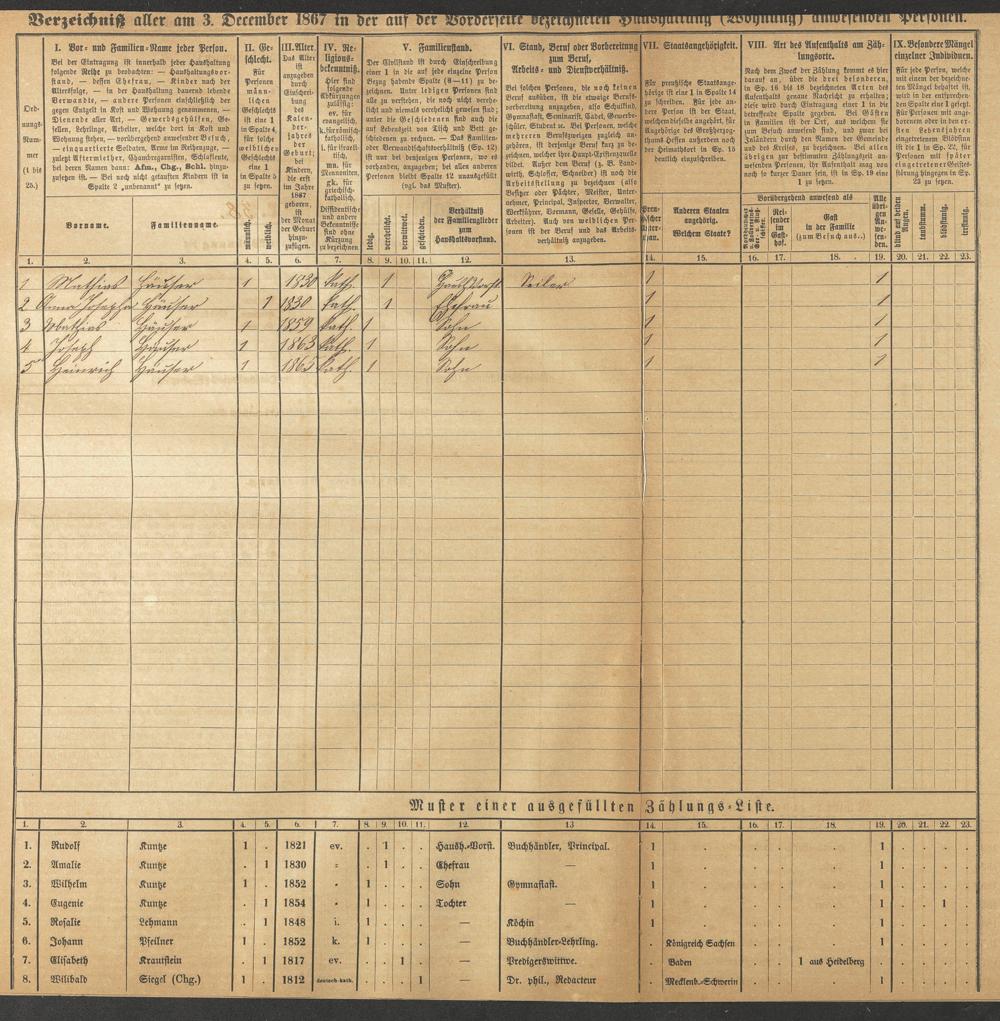 Verzeichniß aller am 3. December 1867 in der auf der Vorderseite bezeichneten Haushaltung (Wohnung) anwesenden Personen.
Ord-
nungs-
Num-
mer
(1 bis
25.)
I. Vor- und Familien-Name jeder Person.
Bei der Eintragung ist innerhalb jeder Haushaltung
folgende Reihe zu beobachten: — Haushaltungsvor-
stand, — dessen Ehefrau, — Kinder nach der
Altersfolge, — in der Haushaltung dauernd lebende
Verwandte, — andere Personen einschließlich der
Dienende aller Art, — Gewerbsgehülfen, Ge-
sellen, Lehrlinge, Arbeiter, welche dort in Kost und
Wohnung stehen, — vorübergehend anwesender Besuch,
— einquartierte Soldaten, Arme im Reihenzuge, —
zuletzt Aftermiether, Chambregarnisten, Schlafleute,
bei deren Namen dann: Afm., Chg., Schl. hinzu-
gegen Entgelt in Kost und Wohnung genommenen, —
zusetzen ist. — Bei noch nicht getauften Kindern ist in
Spalte 2 „unbenannt“ zu setzen.
Vorname.
Familienname.
II. Ge-
schlecht.
Für
Personen
männ-
lichen
Geschlechts
ist eine 1
in Spalte 4,
für solche
weiblichen
Geschlechts
eine 1
in Spalte 5
zu setzen.
männlich.
weiblich.
III. Alter.
Das Alter
ist
anzugeben
durch
Einschrei-
bung
des
Kalen-
der-
jahres
der
Geburt;
bei
Kindern,
die erst
im Jahre
1867
geboren,
ist
der Monat
der Geburt
hinzu-
zufügen.
IV. Re-
ligions-
bekenntniß.
Hier sind
folgende
Abkürzungen
zulässig:
ev. für
evangelisch,
k. für römisch-
katholisch,
i. für israeli-
tisch,
mn. für
Mennoniten,
gk. für
griechisch-
katholisch.
Dissidentische
und andere
Bekenntnisse
sind ohne
Kürzung
zu bezeichnen.
V. Familienstand.
Der Civilstand ist durch Einschreibung
einer 1 in die auf jede einzelne Person
Bezug habende Spalte (8—11) zu be-
zeichnen. Unter ledigen Personen sind
alle zu verstehen, die noch nicht verehe-
licht und niemals verehelicht gewesen sind;
unter die Geschiedenen sind auch die
auf Lebenszeit von Tisch und Bett ge-
schiedenen zu rechnen. — Das Familien-
oder Verwandtschaftsverhältniß (Sp. 12)
ist nur bei denjenigen Personen, wo es
vorhanden ist, anzugeben; bei allen anderen
Personen bleibt Spalte 12 unausgefüllt
(vgl. das Muster).
ledig.
verehelicht.
verwittwet.
geschieden.
Verhältniß
der Familienglieder
zum
Haushaltsvorstand.
VI. Stand, Beruf oder Vorbereitung
zum Beruf,
Arbeits- und Dienstverhältniß.
Bei solchen Personen, die noch keinen
Beruf ausüben, ist die etwaige Berufs-
vorbereitung anzugeben, also Schulkind,
Gymnasiast, Seminarist, Cadet, Gewerbe-
schüler, Student u. Bei Personen, welche
mehreren Berufszweigen zugleich an-
gehören, ist derjenige kurz zu be-
zeichnen, welcher ihre Haupt-Existenzquelle
bildet. Außer dem Beruf (z. B. Land-
wirth, Schlosser, Schneider) ist noch die
Arbeitsstellung zu bezeichnen (also
Besitzer oder Pächter, Meister, Unter-
nehmer, Principal, Inspector, Verwalter,
Werkführer, Vormann, Geselle, Gehülfe,
Arbeiter). Auch von weiblichen Per-
sonen ist der Beruf und das Arbeits-
verhältniß anzugeben.
VII. Staatsangehörigkeit.
Für preußische Staatsange-
hörige ist eine 1 in Spalte 14
zu schreiben. Für jede an-
dere Person ist der Staat,
welchem dieselbe angehört, für
Angehörige des Großherzog-
thums Hessen außerdem noch
der Heimathsort in Sp. 15
deutlich einzuschreiben.
Anderen Staaten
angehörig.
Welchem Staate?
VIII. Art des Aufenthalts am Zäh-
lungsorte.
Nach dem Zweck der Zählung kommt es hier
darauf an, über die drei besonderen,
in Sp. 16 bis 18 bezeichneten Arten des
Aufenthalts genaue Nachricht zu erhalten;
diese wird durch Eintragung einer 1 in die
betreffende Spalte gegeben. Bei Gästen
in Familien ist der Ort, aus welchem sie
zum Besuch anwesend sind, und zwar bei
Inländern durch den Namen der Gemeinde
und des Kreises, zu bezeichnen. Bei allen
übrigen zur bestimmten Zählungszeit an-
wesenden Personen, ihr Aufenthalt mag von
noch so kurzer Dauer sein, ist in Sp. 19 eine
1 zu setzen.
Vorübergehend anwesend als
Rei-
sender
im
Gast-
hof.
Gast
in der Familie
(zum Besuch aus..)
Alle
übri-
gen An-
we-
sen-
den.
IX. Besondere Mängel
einzelner Individuen.
Für jede Person, welche
mit einem der bezeichne-
ten Mängel behaftet ist,
wird in der entsprechen-
den Spalte eine 1 gesetzt.
Für Personen mit ange-
borenem oder in den er-
sten Lebensjahren
eingetretenem Blödsinn
ist die 1 in Sp. 22, für
Personen mit später
eingetretener Geistes-
störung hingegen in Sp.
23 zu setzen.
blind auf beiden
Augen.
taubstumm.
blödsinnig.
irrsinnig.
1. 2. 3. 4. 5. 6. 7. 8. 9. 10. 11. 12. 13. 14. 15. 16. 17. 18. 19. 20. 21. 22. 23.
1 Mathias Häuser 1 1830 kath. 1 Seiler 1 1
2 Anna Josepha Häuser 1 1830 kath. 1 Ehefrau 1 1
3 Mathias Häuser 1 1859 kath. 1 Sohn 1 1
4 Joseph Häuser 1 1863 kath. 1 Sohn 1 1
5 Heinrich Häuser 1 1865 kath. 1 Sohn 1 1
Muster einer ausgefüllten Zählungs-Liste.
1. 2. 3. 4. 5. 6. 7. 8. 9. 10. 11. 12. 13 14. 15. 16. 17. 18. 19. 20. 21. 22. 23.
1. Rudolf Kuntze 1 . 1821 ev. . 1 . . Haush.-Vorst. Buchhändler, Principal. 1 . . . . 1 . . . .
2. Amalie Kuntze . 1 1830 = . 1 . . Ehefrau — 1 . . . . 1 . . . .
3. Wilhelm Kuntze 1 . 1852 = 1 . . . Sohn Gymnasiast. 1 . . . . 1 . . . .
4. Eugenie Kuntze . 1 1854 = 1 . . . Tochter — 1 . . . . 1 . . 1 .
5. Rosalie Lehmann . 1 1848 i. 1 . . . — Köchin 1 . . . . 1 . . . .
6. Johann Pfeilner 1 . 1852 k. 1 . . . — Buchhändler-Lehrling. . Königreich Sachsen . . . 1 . . . .
7. Elisabeth Krautstein . 1 1817 ev. . . 1 . — Predigerswittwe. . Baden . . 1 aus Heidelberg . . . . .
8. Wilibald Siegel (Chg.) 1 . 1812 deutsch-kath. . . . 1 — Dr. phil., Redacteur . Mecklenb.-Schwerin . . . 1 . . . .